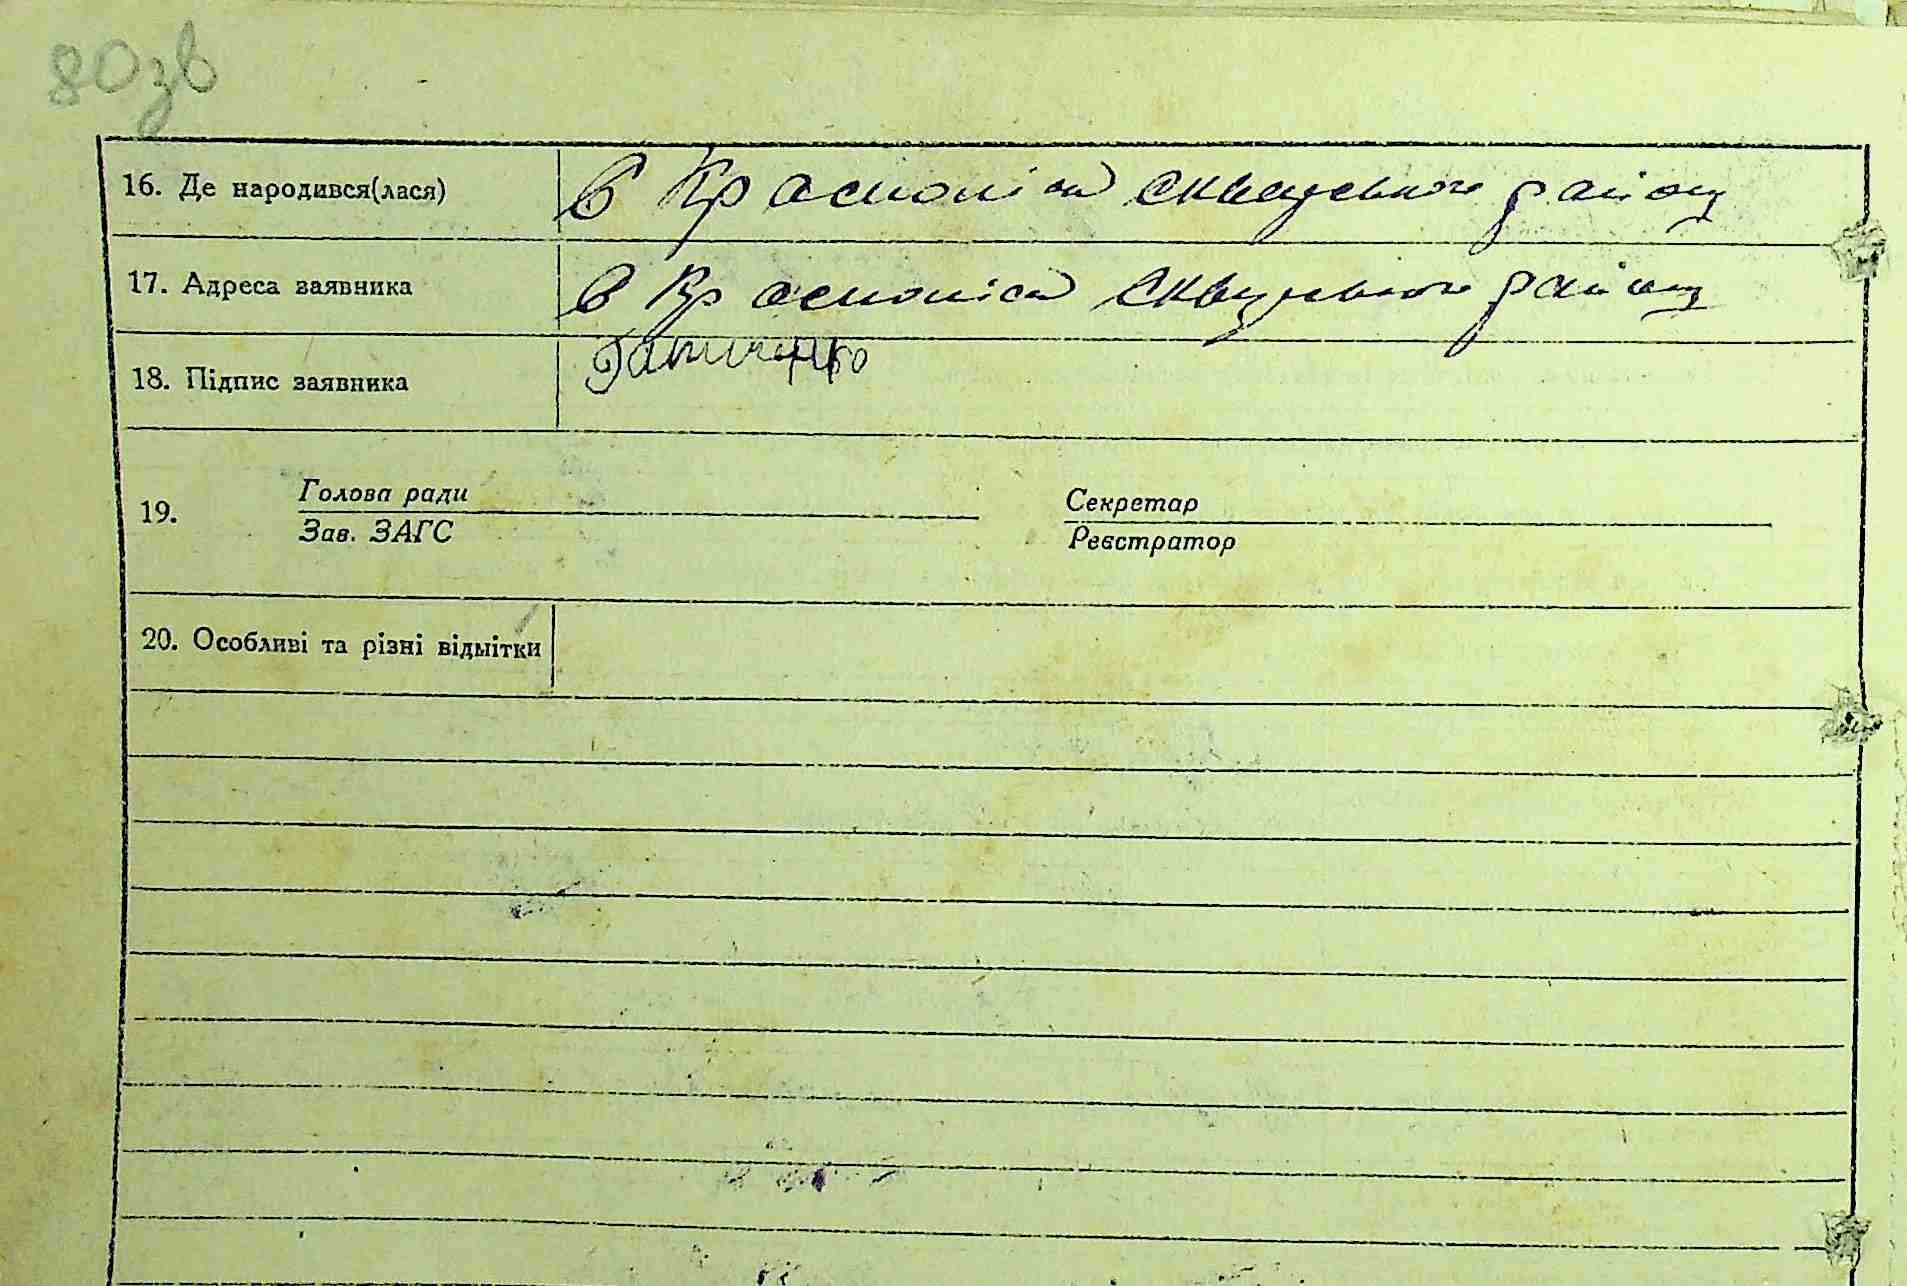 80зв
16. Де народився(лася) в Краснолісі Сквирського району
17. Адреса заявника в Краснолісі Сквирського району
18. Підпис заявника
19. Голова ради Секретар
Зав. ЗАГС Реєстратор
20. Особливі та різні відмітки